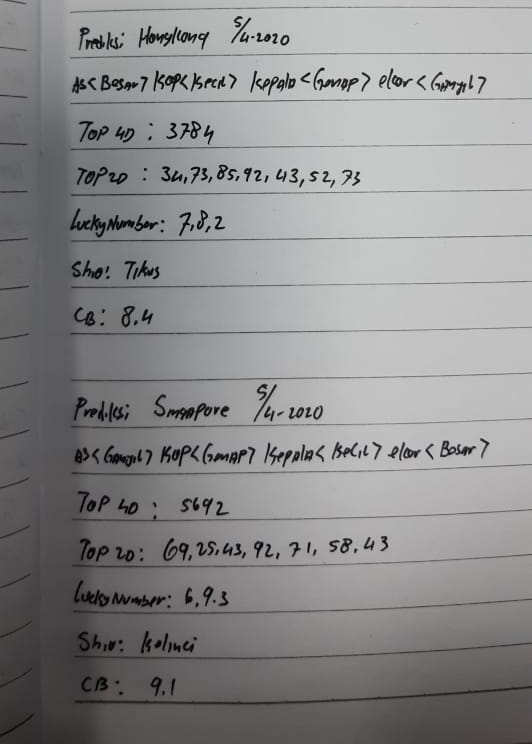 Prediksi Hongkong 5/4-2020
AS<Besar> KOP<Kecil> Kepala<Genap> ekor<Ganjil>
TOP 4D : 3784
TOP 2D : 34,73,85,92,43,52,73
Lucky Number: 7,8,2
Shio: Tikus
CB: 8.4
Prediksi Singapore 5/4-2020
AS<Ganjil> KOP<Genap> Kepala<Kecil> ekor<Besar>
TOP 4D : 5692
TOP 2D: 69,25,43,92,71,58.43
Lucky Number: 6,9.3
Shio: Kelinci
CB: 9,1